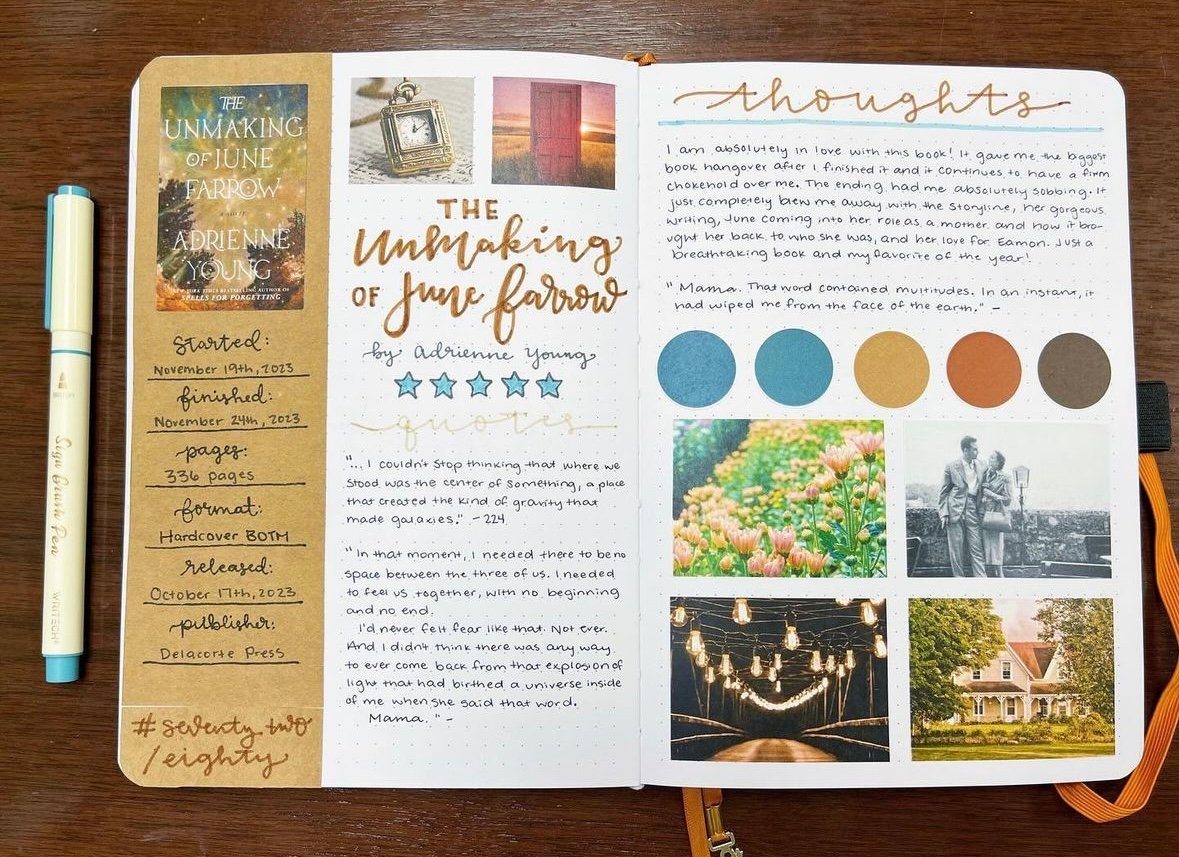 THE
UNMAKING
OF JUNE
FARROW
A NOVEL
ADRIENNE
YOUNG
NEW YORK TIMES BESTSELLING AUTHOR OF
SPELLS FOR FORGETTING
Started:
November 19th, 2023
finished:
November 24th, 2023
pages:
336 pages
format:
Hardcover BOTM
released:
October 17th, 2023
publisher:
Delacorte Press
# seventy two
/eighty
THE
Unmaking
OF June Farrow
by Adrienne Young
quotes
"... I couldn't stop thinking that where we
stood was the center of something, a place
that created the kind of gravity that
made galaxies." - 224
"In that moment, I needed there to be no
space between the three of us. I needed
to feel us together, with no beginning
and no end.
I'd never felt fear like that. Not ever.
And I didn't think there was any way
to ever come back from that explosion of
light that had birthed a universe inside
of me when she said that word.
Mama." -
thoughts
I am absolutely in love with this book! It gave me the biggest
book hangover after I finished it and it continues to have a firm
chokehold over me. The ending had me absolutely sobbing. It
just completely blew me away with the storyline, her gorgeous
writing, June coming into her role as a mother and how it bro-
ught her back to who she was, and her love for Eamon. Just a
breathtaking book and my favorite of the year!
"Mama. That word contained multitudes. In an instant, it
had wiped me from the face of the earth." -
Sign Brush Pen
WRITECH